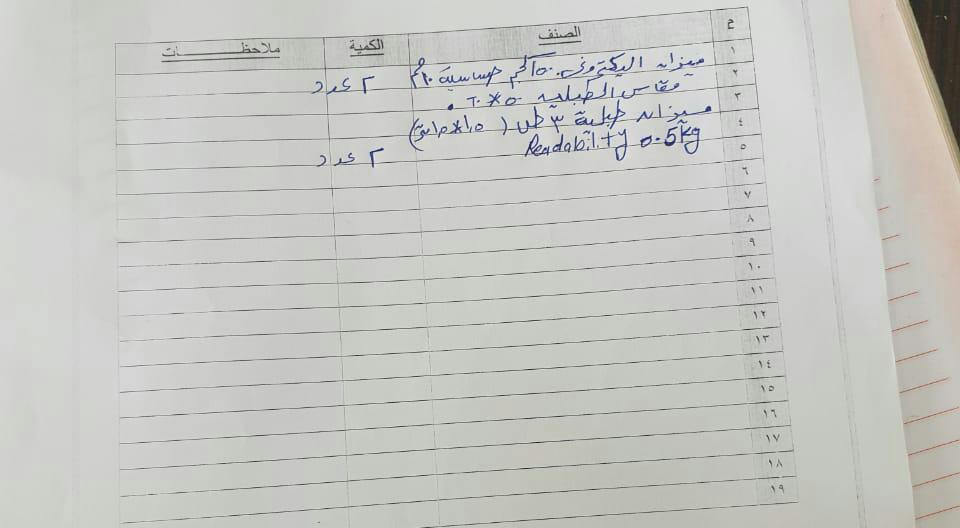 م الصنف الكمية ملاحظـــــــات
١ ميزان اليكتروني ١٥٠ كجم حساسية ٢٠ جم ٢ عدد
٢ مقاس الطبلية ٥٠*٦٠
٣ ميزان طبلية ٣ طن
٤ Readability 0.5kg ٢ عدد
٥
٦
٧
٨
٩
١٠
١١
١٢
١٣
١٤
١٥
١٦
١٧
١٨
١٩